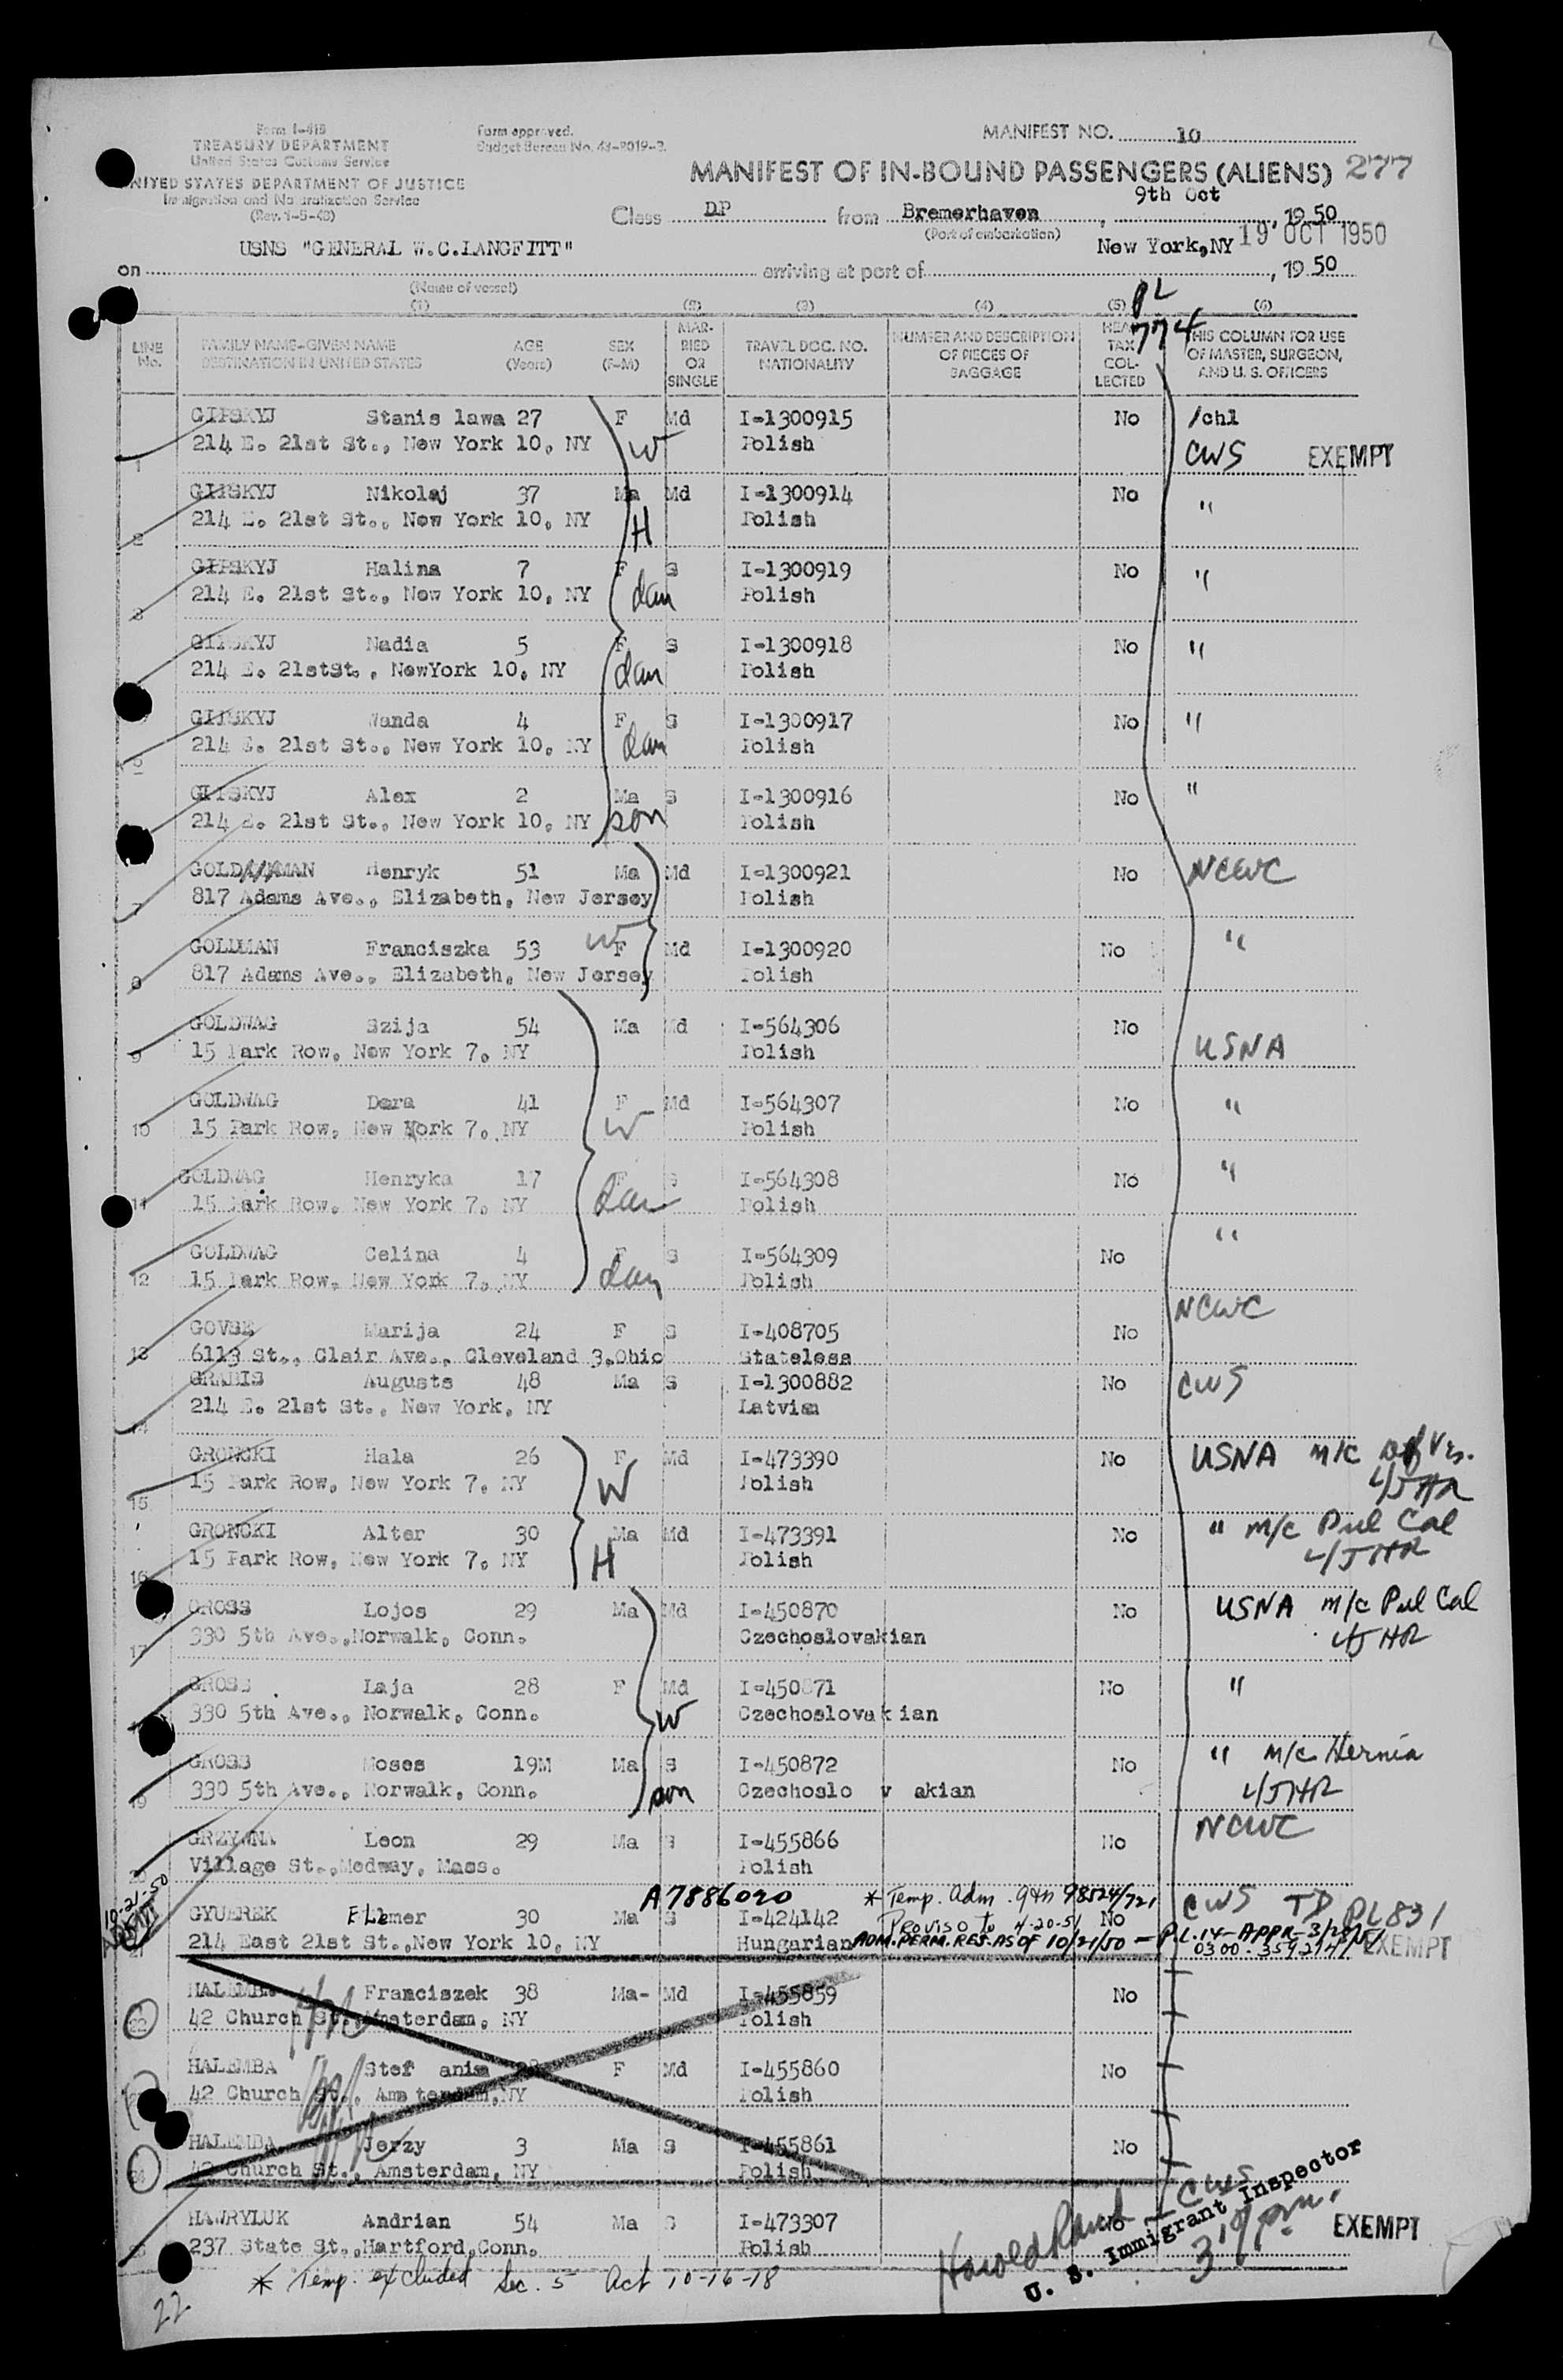 Form I-418
TREASURY DEPARTMENT
United States Customs Service
UNITED STATES DEPARTMENT OF JUSTICE
Immigration and Naturalization Service
(Rev. 1-5-48)
Form approved.
Budget Bureau No. 43-R019-2.
MANIFEST NO. 10
MANIFEST OF IN-BOUND PASSENGERS (ALIENS) 277
Class DP from Bremerhaven, 9th Oct, 1950
(Port of embarkation)
19 OCT 1950
on USNS "GENERAL W.C.LANGFITT" arriving at port of New York,NY, 1950
(Name of vessel)
(1) (2) (3) (4) (5) (6)
PL 774
LINE No. FAMILY NAME-GIVEN NAME DESTINATION IN UNITED STATES AGE (Years) SEX (F-M) MARRIED OR SINGLE TRAVEL DOC. NO. NATIONALITY NUMBER AND DESCRIPTION OF PIECES OF BAGGAGE HEAD TAX COLLECTED THIS COLUMN FOR USE OF MASTER, SURGEON, AND U. S. OFFICERS
GIPSKYJ Stanis lawa 27 F Md I-1300915 No /chl
1 214 E. 21st St., New York 10, NY W Polish CWS EXEMPT
GIPSKYJ Nikolaj 37 Ma Md I-1300914 No "
2 214 E. 21st St., New York 10, NY H Polish
GIPSKYJ Halina 7 F S I-1300919 No "
3 214 E. 21st St., New York 10, NY dau Polish
GIPSKYJ Nadia 5 F S I-1300918 No "
214 E. 21stSt., NewYork 10, NY dau Polish
GIPSKYJ Wanda 4 F S I-1300917 No "
214 E. 21st St., New York 10, NY dau Polish
GIPSKYJ Alex 2 Ma S I-1300916 No "
214 E. 21st St., New York 10, NY son Polish
GOLDMAN Henryk 51 Ma Md I-1300921 No NCWC
7 817 Adams Ave., Elizabeth, New Jersey Polish
GOLDMAN Franciszka 53 W F Md I-1300920 No "
8 817 Adams Ave., Elizabeth, New Jersey Polish
GOLDWAG Szija 54 Ma Md I-564306 No
9 15 Park Row, New York 7, NY Polish USNA
GOLDWAG Dora 41 F Md I-564307 No "
10 15 Park Row, New York 7, NY W Polish
GOLDWAG Henryka 17 F S I-564308 No "
11 15 Park Row, New York 7, NY dau Polish
GOLDWAG Celina 4 F S I-564309 No "
12 15 Park Row, New York 7, NY dau Polish
GOVSE Marija 24 F S I-408705 No NCWC
13 6113 St., Clair Ave., Cleveland 3,Ohio Stateless
GRABIS Augusts 48 Ma S I-1300882 No CWS
14 214 E. 21st St., New York, NY Latvian
GRONCKI Hala 26 F Md I-473390 No USNA m/c Def Vis.
15 15 Park Row, New York 7, NY W Polish L/JHR
GRONCKI Alter 30 Ma Md I-473391 No " m/c Pul Cal
16 15 Park Row, New York 7, NY H Polish L/JHR
GROSS Lojos 29 Ma Md I-450870 No USNA m/c Pul Cal
17 330 5th Ave.,Norwalk, Conn. Czechoslovakian L/JHR
GROSS Laja 28 F Md I-450871 No "
330 5th Ave., Norwalk, Conn. W Czechoslovak ian
GROSS Moses 19M Ma S I-450872 No " m/c Hernia
19 330 5th Ave., Norwalk, Conn. son Czechoslo v akian L/JHR
GRZYWNA Leon 29 Ma S I-455866 No NCWC
20 Village St.,Medway, Mass. Polish
10-21-50 A7886020 * Temp. adm. 9th 98524/721 CWS TD PL831
GYUEREK Elmer 30 Ma S I-424142 Proviso to 4-20-51 No
214 East 21st St.,New York 10, NY Hungarian ADM. PERM. RES. AS OF 10/21/50 - P.L. 14-APPR-3/28/51 EXEMPT
HALEMBA Franciszek 38 Ma- Md I-455859 No
22 42 Church St., Amsterdam, NY Polish
HALEMBA Stef ania F Md I-455860 No
42 Church St., Ams terdam,NY Polish
HALEMBA Jerzy 3 Ma S I-455861 No
24 42 Church St., Amsterdam, NY Polish
HAWRYLUK Andrian 54 Ma S I-473307 No CWS
237 State St.,Hartford,Conn. Polish EXEMPT
* Temp. excluded Sec. 5 Act 10-16-18
Harold Rand
U. S. Immigrant Inspector
22